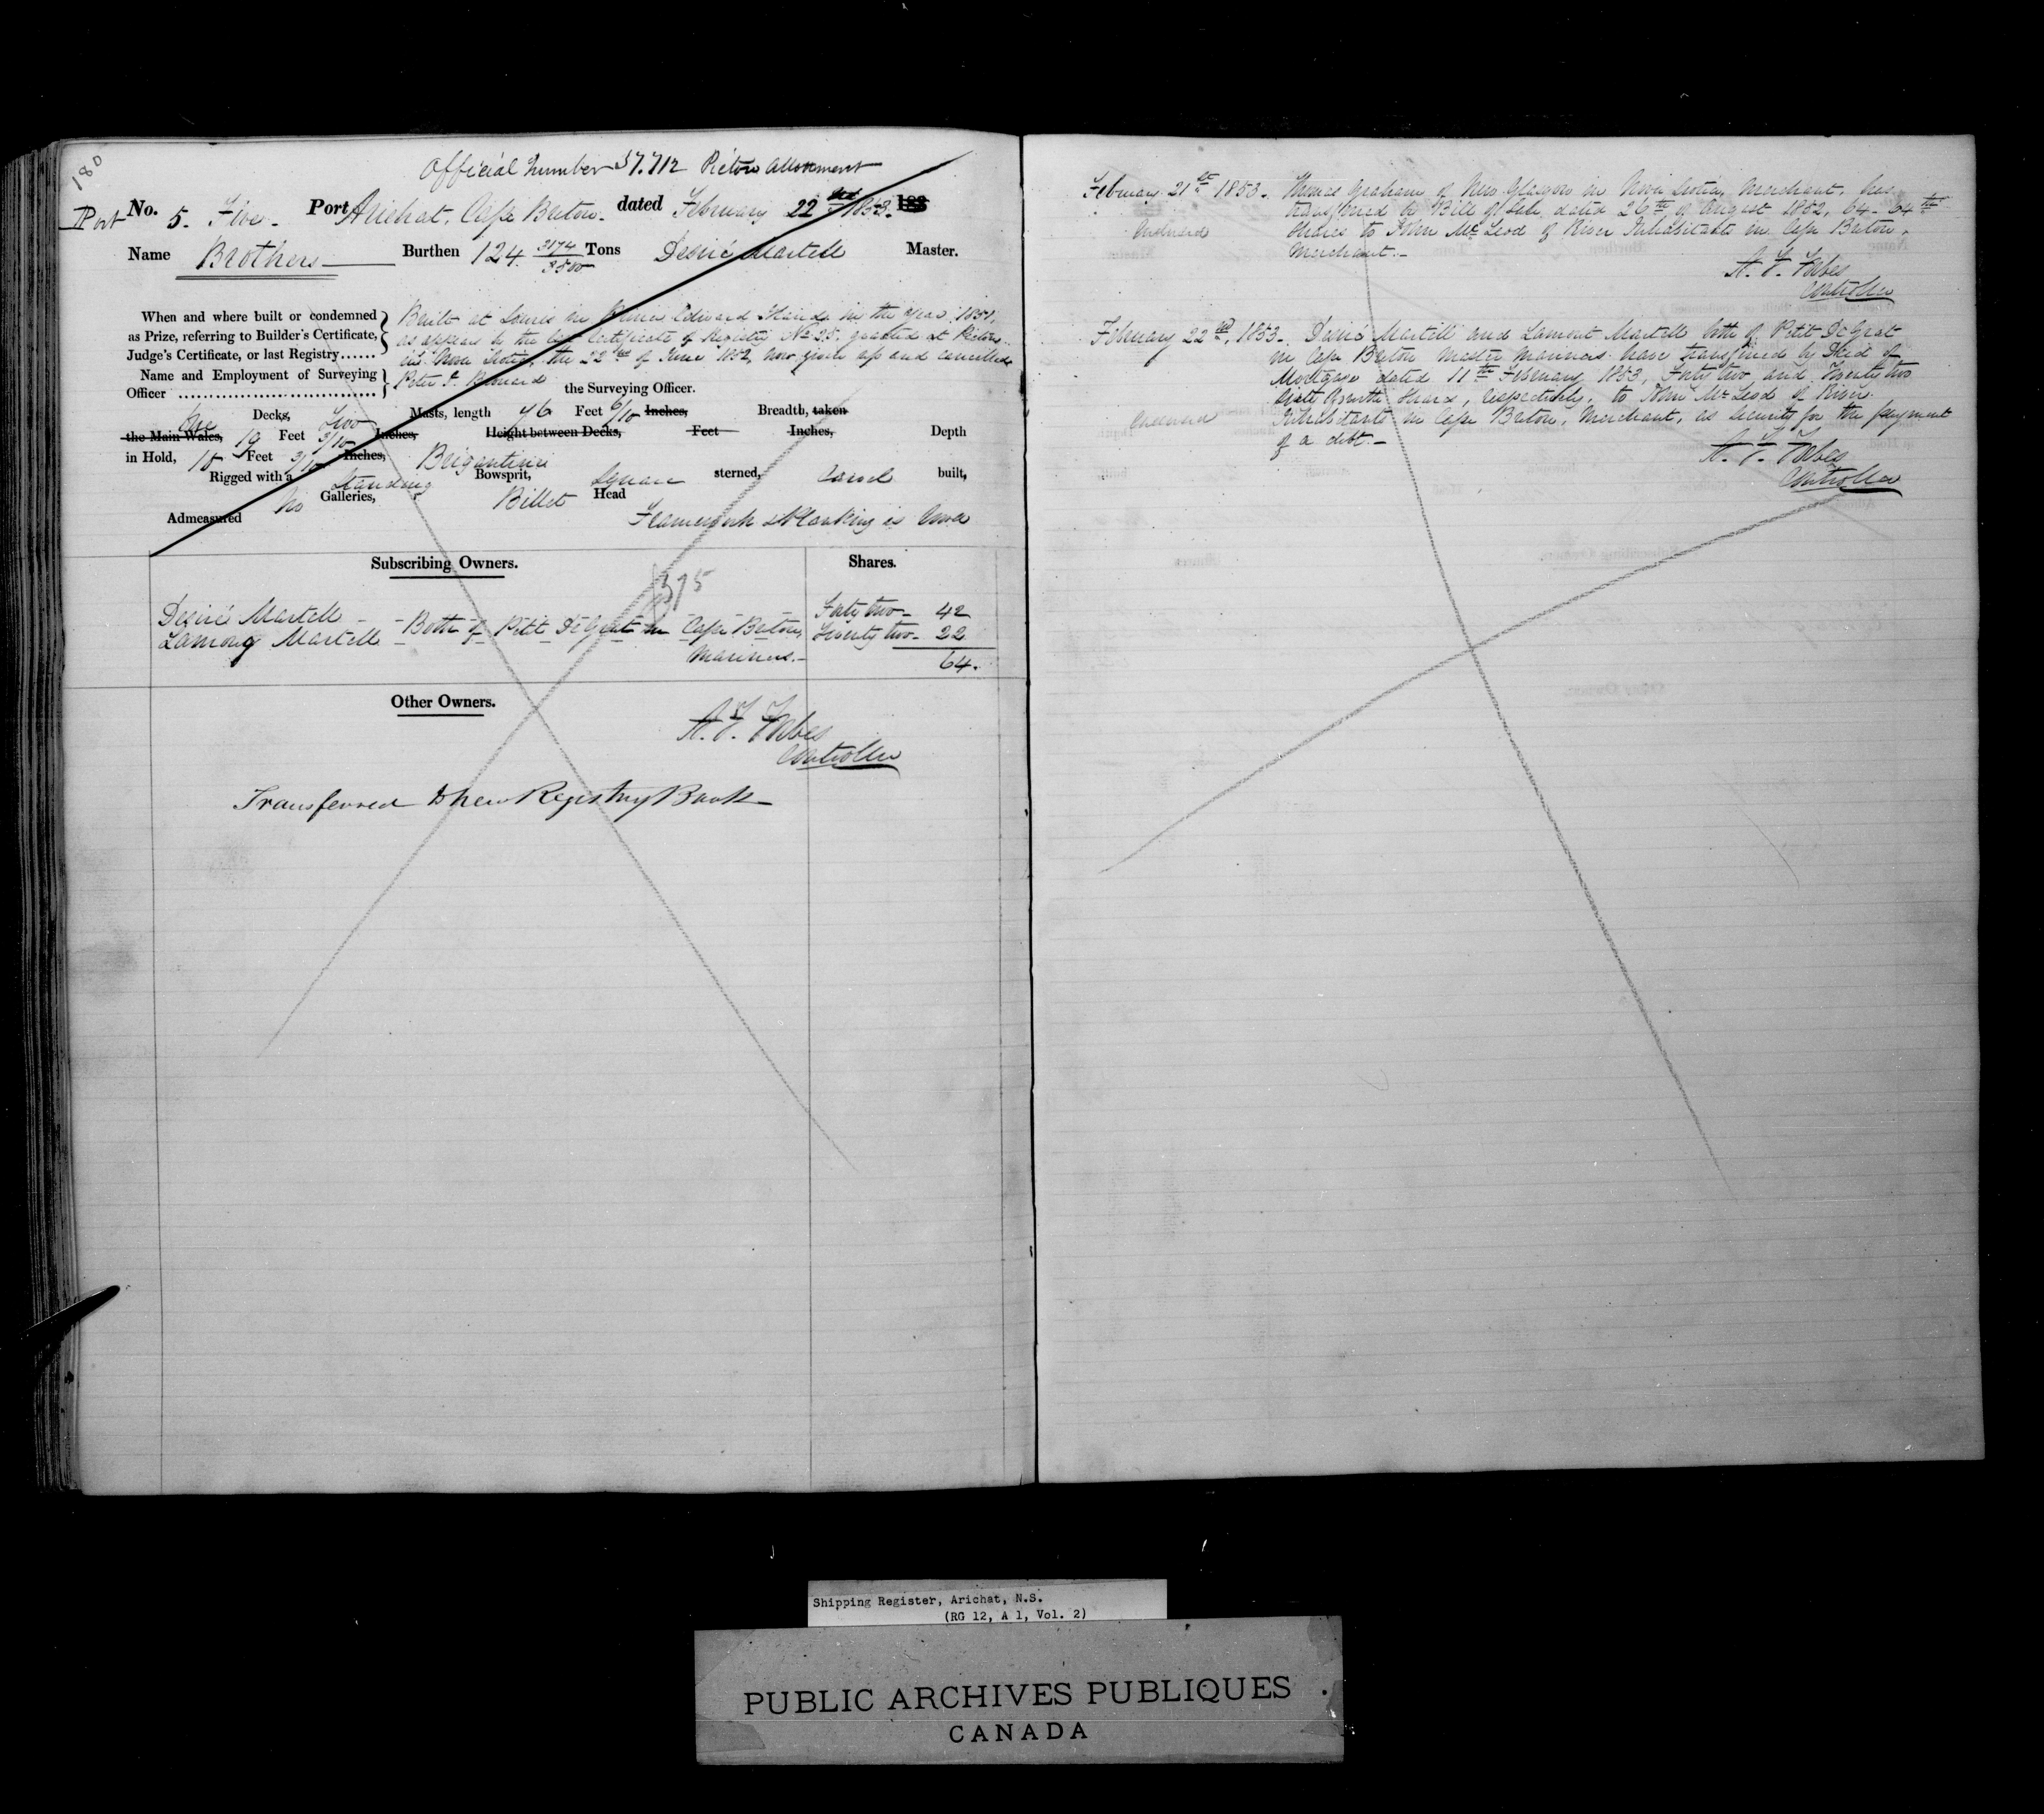 180
Official Number 37.712 Pictou Allotment
Port No. 5. Five. Port Arichat, Cape Breton. dated February 22nd 1853. 183
Name Brothers Burthen 124 3174/3500 Tons Desiré Martell Master.
When and where built or condemned as Prize, referring to Builder's Certificate, Judge's Certificate, or last Registry......
Built at Souris in Prince Edward Island in the year 1851,
as appears by the last Certificate of Registry No 25. granted at Pictou
in Nova Scotia, the 22nd of June 1852, now given up and cancelled
Name and Employment of Surveying Officer
Peter
the Surveying Officer.
One Decks, Two Masts, length 76 Feet 6/10 Inches, Breadth, taken
the Main Wales, 19 Feet 3/10 Inches, Height between Decks, Feet Inches, Depth
in Hold, 10 Feet 3/10 Inches,
Rigged with a Standing Brigantine Bowsprit, Square sterned, Carvel built,
No Galleries, Billet Head
Admeasured Framework & Planking is Wood
Subscribing Owners. Shares.
375
Desiré Martell Forty two 42
Lamong Martell Both of Petit DeGrat in Cape Breton, Twenty two 22
Mariners. 64.
Other Owners.
A. F. Forbes
Controller
Transferred to new Registry Book
February 21st 1853. Thomas Graham of New Glasgow in Nova Scotia, Merchant, has
transferred by Bill of Sale dated 26th of August 1852, 64-64th
Shares to John McLeod of River Inhabitants in Cape Breton,
Merchant.
A. F. Forbes
Controller
February 22nd, 1853. Desiré Martell and Lamont Martell both of Petit DeGrat
in Cape Breton Master Mariners have transferred by Deed of
Mortgage dated 11th February 1853, Forty two and Twenty two
Sixty fourth Shares, respectively, to John McLeod of River
Inhabitants in Cape Breton, Merchant, as security for the payment
of a debt.
A. F. Forbes
Controller
Shipping Register, Arichat, N.S.
(RG 12, A 1, Vol. 2)
PUBLIC ARCHIVES PUBLIQUES
CANADA